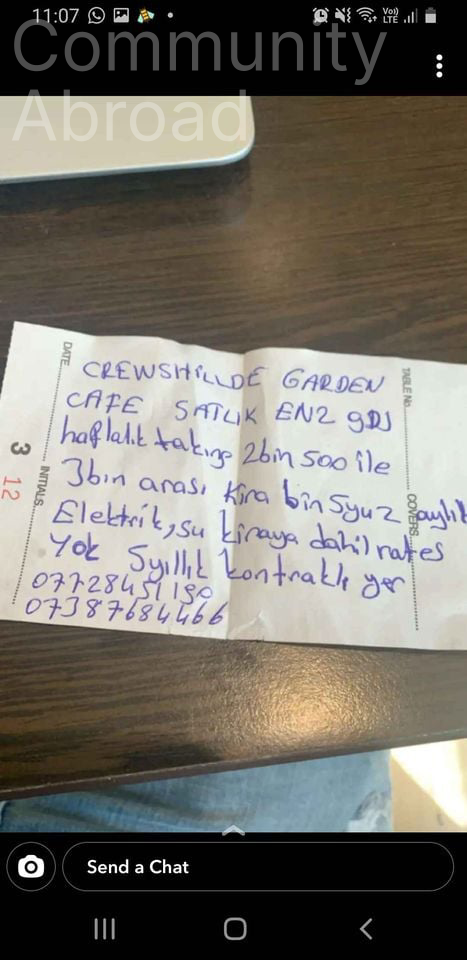 11:07
Vo))
LTE
Community
Abroad
DATE
INITIALS
3
12
TABLE No
COVERS
CREWSHİLLDE GARDEN
CAFE SATLIK EN2 9DJ
haflalık takings 2bin 500 ile
3bin arası kira bin 5yuz aylık
Elektrik, su kiraya dahil rates
Yok 5yıllık kontraklı yer
07387684466
Send a Chat